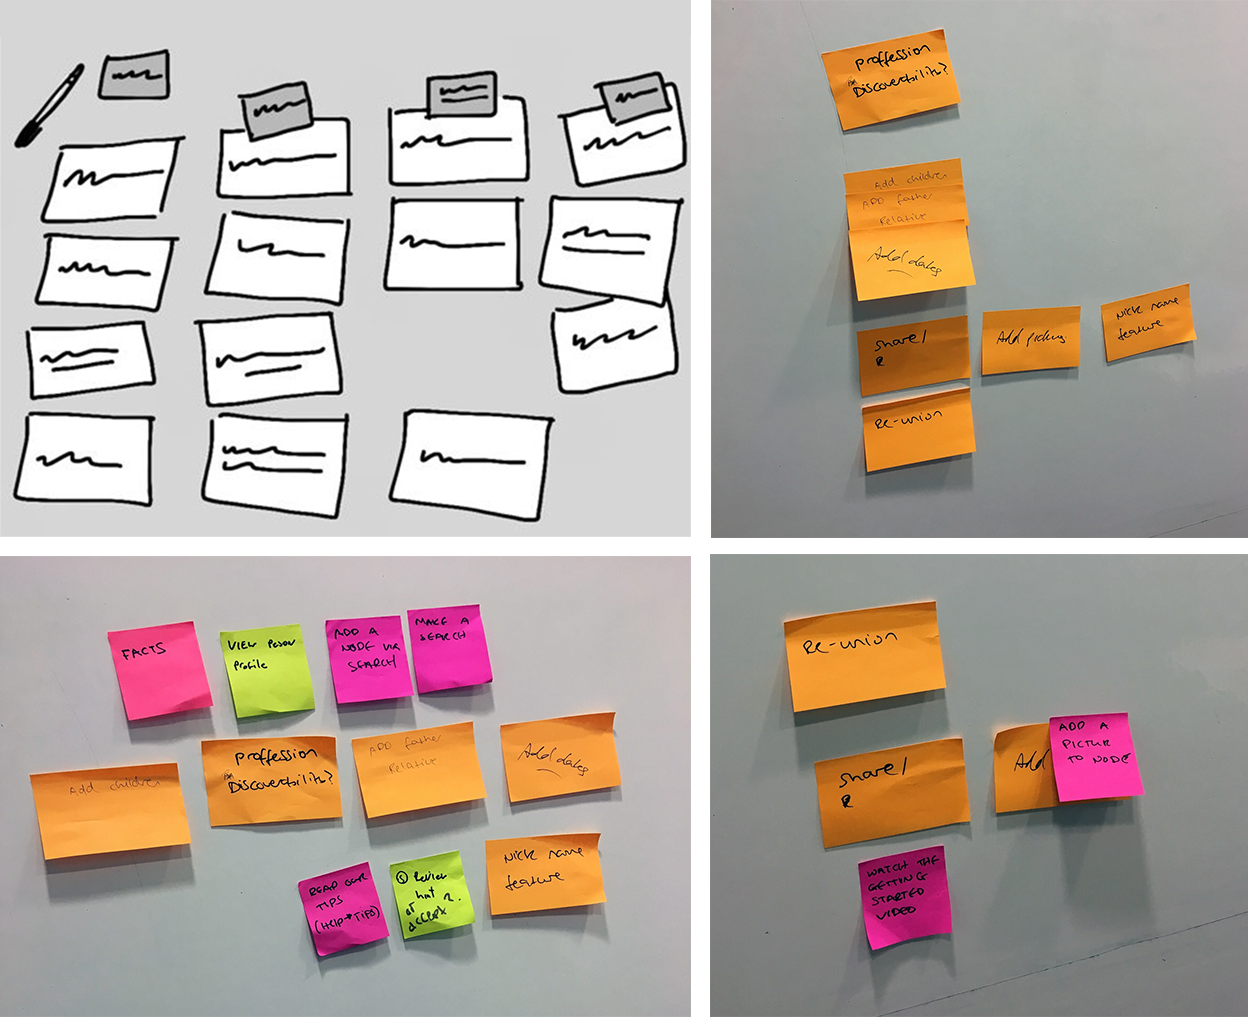 proffession
for Discoverability?
Add children
ADD father
Relative
Add dates
share/
R
Add picture
Nick name
feature
Re-union
FACTS
VIEW PERSON
Profile
ADD A
NODE VIA
SEARCH
MAKE A
SEARCH
Add children
proffession
for Discoverability?
ADD father
Relative
Add dates
READ OUR
TIPS
(HELP→TIPS)
Review
hint
accept
Nick name
feature
Re-union
share/
R
Add
ADD A
PICTUR
TO NODE
WATCH THE
GETTING
STARTED
VIDEO